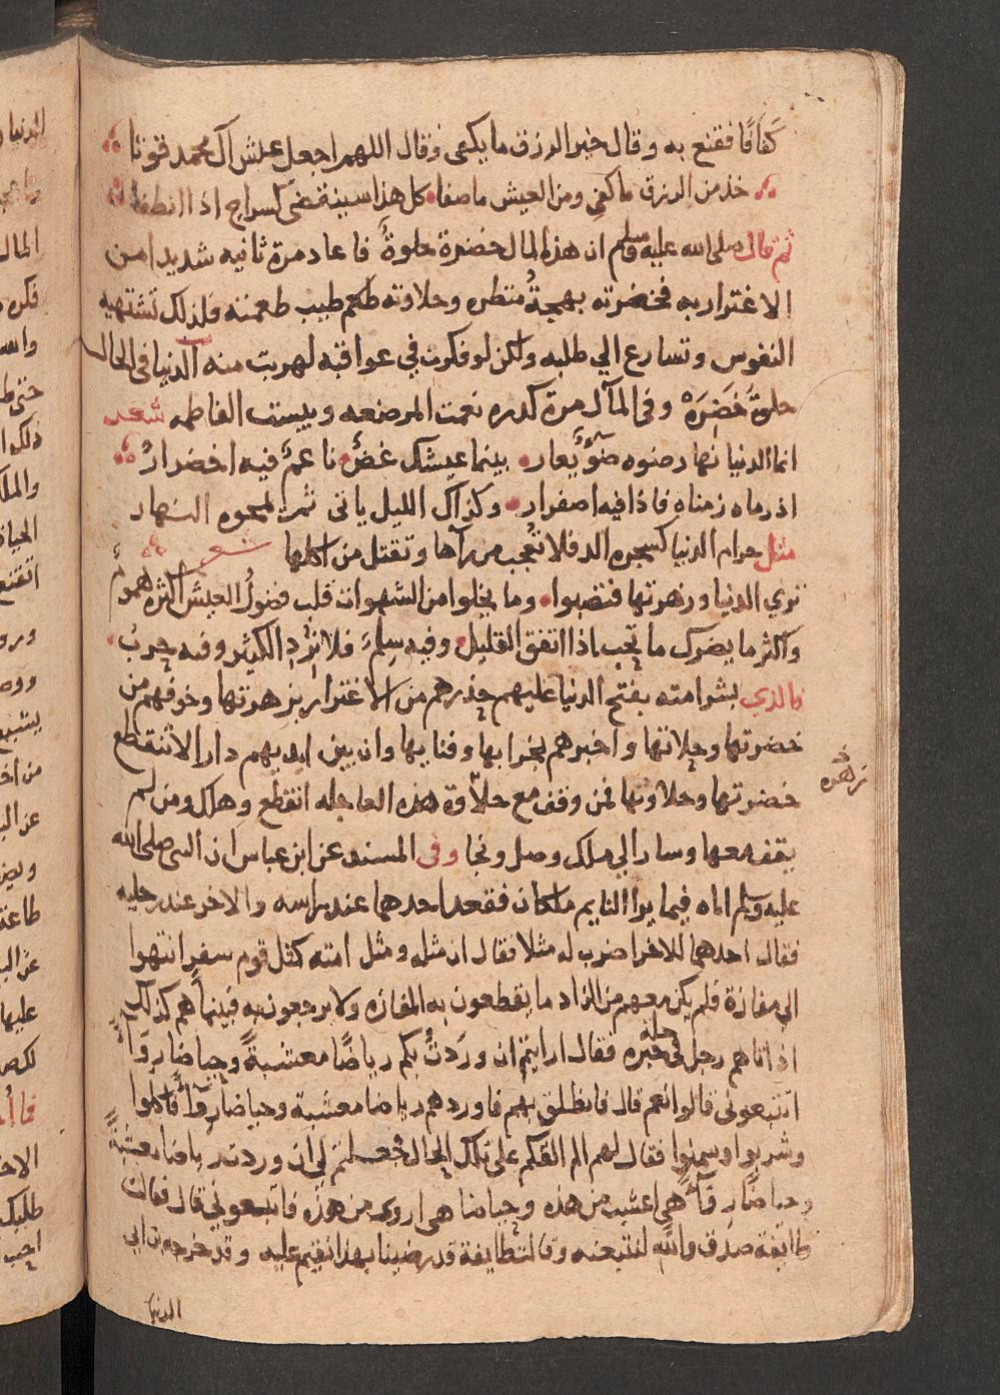 كفافا فقنع به وقال خير الرزق ما يكفي وقال اللهم اجعل عيش آل محمد قوتا
خذ من الرزق ما كفي ومن العيش ما صفا كل هذا سينقضي كسراج اذا انطفا
ثم قال صلى الله عليه وسلم ان هذه المال خضرة حلوة فاعاد مرة ثانيه شديدا من
الاغترار به فخضرته بهجة منظره وحلاوته طعم طيب طعمه فلذلك تشتهيه
النفوس وتسارع الي طلبه ولكن لو فكرت في عواقبه لهربت منه الدنيا في الحال
حلوة خضرة وفي المآل مرة كدره نعمت المرضعه وبيست الفاطمه شعر
انما الدنيا نهار ضوه ضوء يعار بينما عيشك غض ناعم فيه اخضرار
اذ رماه زمناه فاذا فيه اصفرار وكذاك الليل ياتي ثم يمحوه النهار
مثل حرام الدنيا كشجره الدفلا تعجب من رآها وتقتل من اكلها شعر
نري الدنيا وزهرتها فنصبوا وما يخلوا من الشهوات قلب فضول العيش اكثره هموم
واكثر ما يضرك ما تحب اذا اتفق القليل وفيه سلم فلا ترد الكثير وفيه حرب
فالذي بشر امته بفتح الدنيا عليهم حذرهم من الاغترار بزهرتها وخوفهم من
خضرتها وحلاتها واخبرهم بخرابها وفنايها وان بين ايديهم دار الا تنقطع
زهره
خضرتها وحلاوتها فمن وقف مع حلاوة هذه العاجله انقطع وهلك ومن لم
يقف معها وسار الي ملك وصل ونجا وفي المسند عن ابن عباس ان النبي صلى الله
عليه وسلم اتاه فيما يرا النايم ملكان فقعد احدهما عند راسه والاخر عند رجليه
فقال احدهما للاخر اضرب له مثلا فقال ان مثله ومثل امته كمثل قوم سفر انتهوا
الي مفازة فلم يكن معهم من الزاد ما يقطعون به المفازه ولا يرجعون به فبينما هم كذلك
اذ اتاهم رجل في حله حبره فقال ارايتم ان وردت بكم رياضا معشبة وحياضا رواء
اتتبعوني قالوا نعم قال فانطلق بهم فاوردهم رياضا معشبة وحياضا رواء فاكلوا
وشربوا وسمنوا فقال لهم الم القكم على تلك الحال فجعلتم لي ان وردت رياضا معشبة
وحياضا رواء هي اعشب من هذه وحياضا هي اروى من هذه فاتبعوني قال فقالت
طايفة صدق والله لنتبعنه وقالت طايفة قد رضينا بهذا نقيم عليه وقد خرجه بن ابي
الدنيا